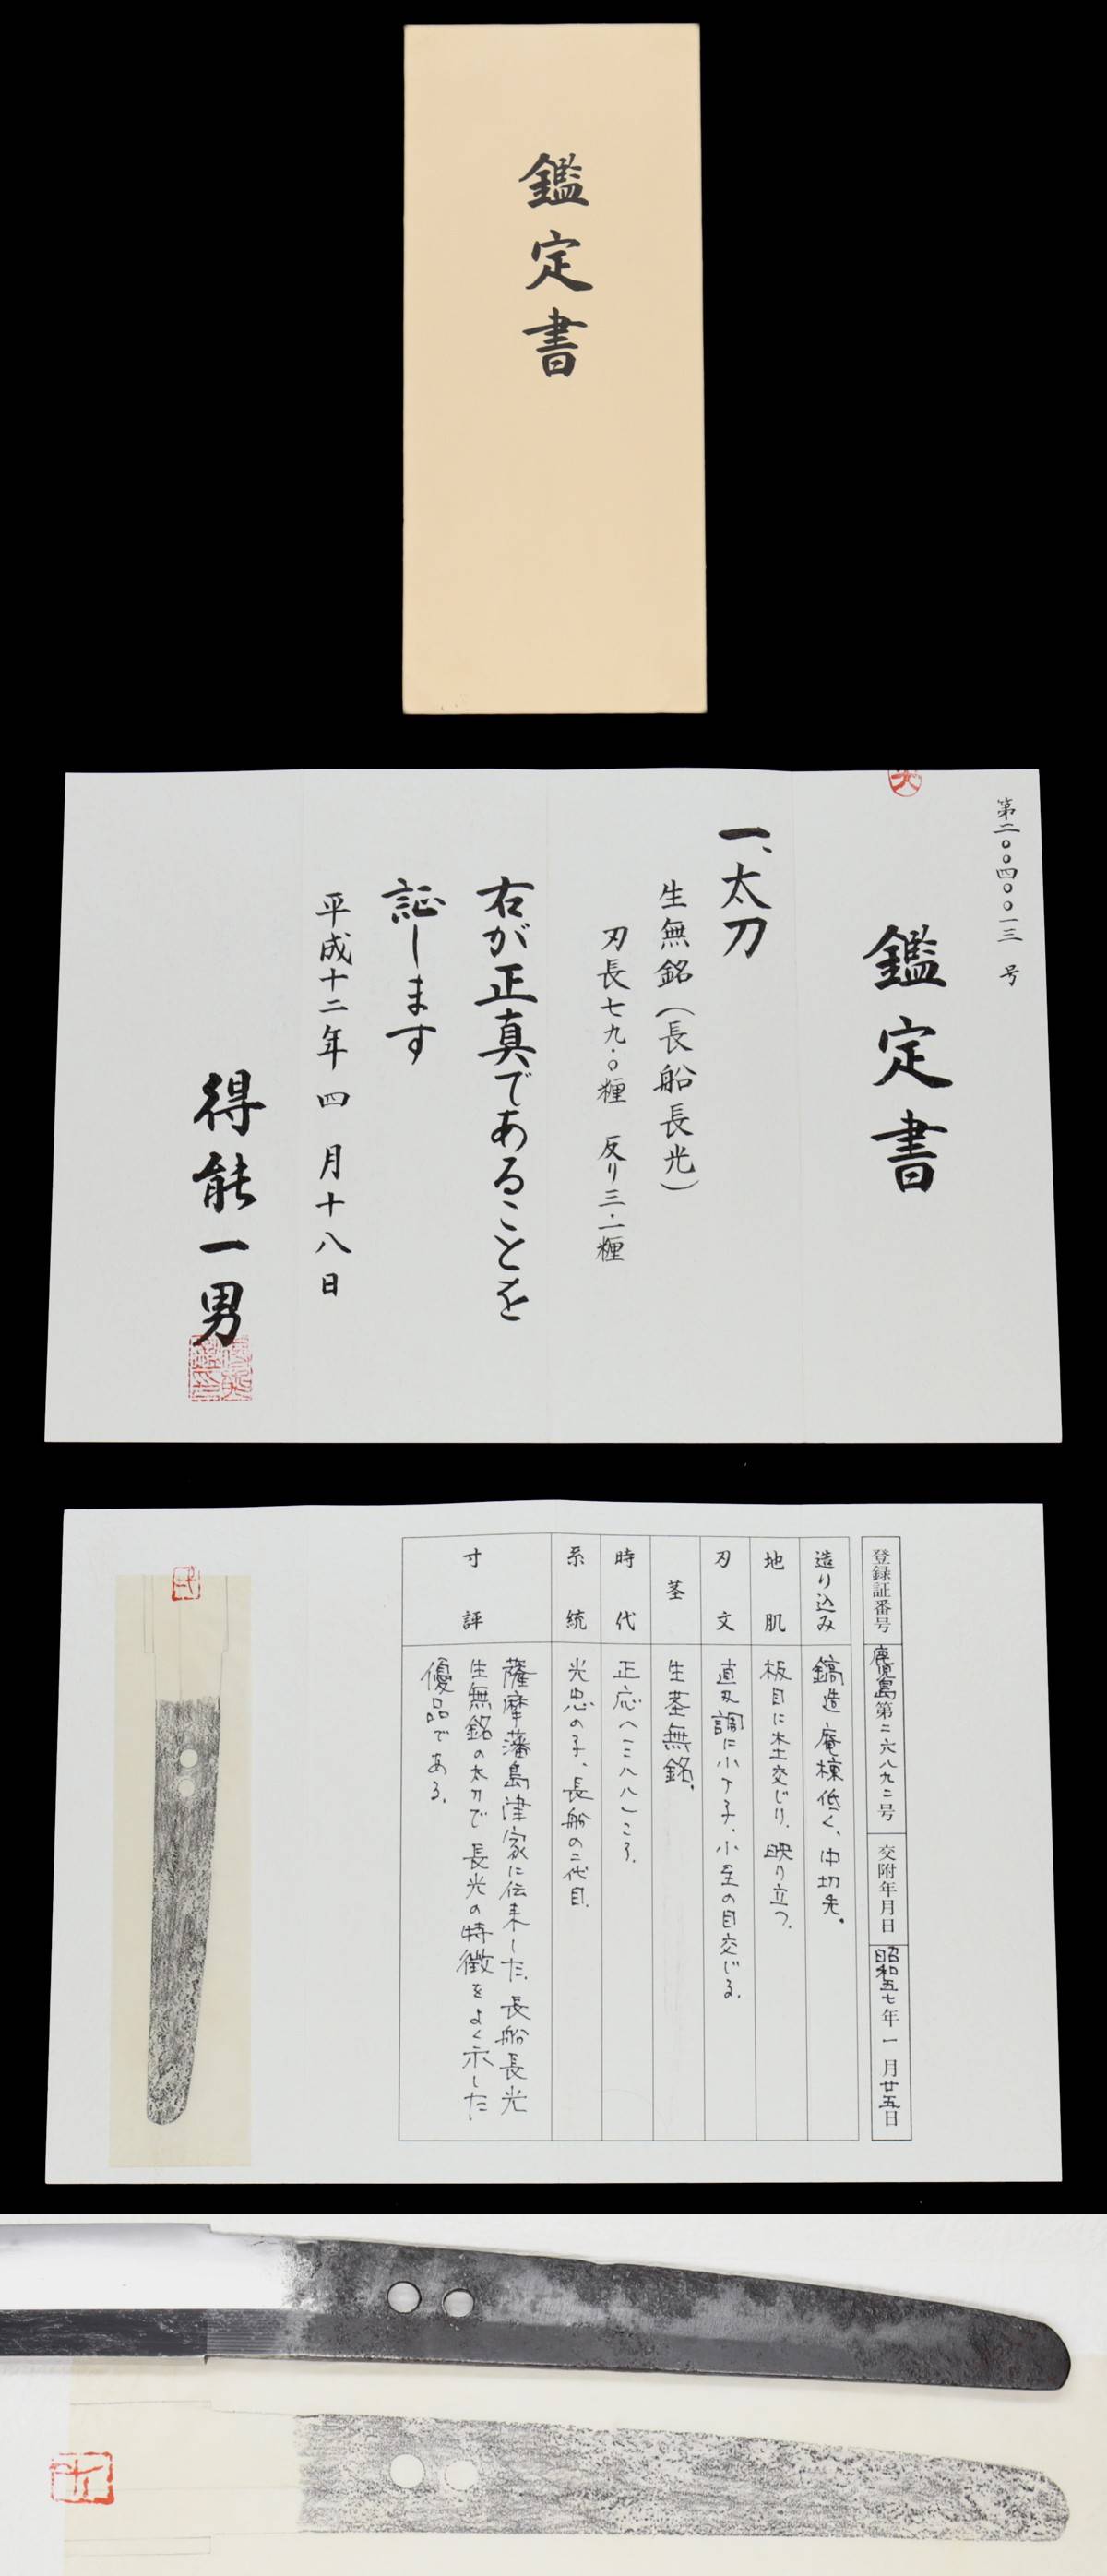 鑑定書
第二〇〇四〇〇一三号
鑑定書
一、太刀
生無銘(長船長光)
刃長七九・〇糎 反り三・一糎
右が正真であることを
証します
平成十二年四月十八日
得能一男
登録証番号 鹿児島第二六八九二号 交附年月日 昭和五七年一月廿五日
造り込み 鎬造 庵棟低く、中切先。
地肌 板目に杢交じり、映り立つ。
刃文 直刃調に小丁子、小互の目交じる。
茎 生茎無銘。
時代 正応(一二八八)ころ。
系統 光忠の子、長船の二代目。
寸評 薩摩藩島津家に伝来した、長船長光
生無銘の太刀で長光の特徴をよく示した
優品である。